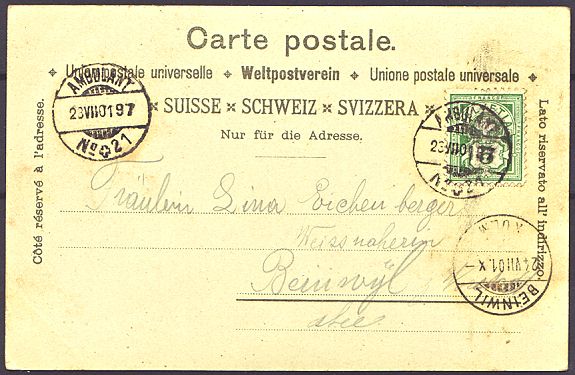 Carte postale.
Union postale universelle ✦ Weltpostverein ✦ Unione postale universale
SUISSE × SCHWEIZ × SVIZZERA
Nur für die Adresse.
Côté réservé à l'adresse.
Lato riservato all' indirizzo.
AMBULANT
23 VII 01 97
No 21
AMBULANT
23 VII 01
No 21
5
Fräulein Lina Eichenberger
Weissnäherin
Beinwyl
a/See
KULM
24 VII 01. X
BEINWIL